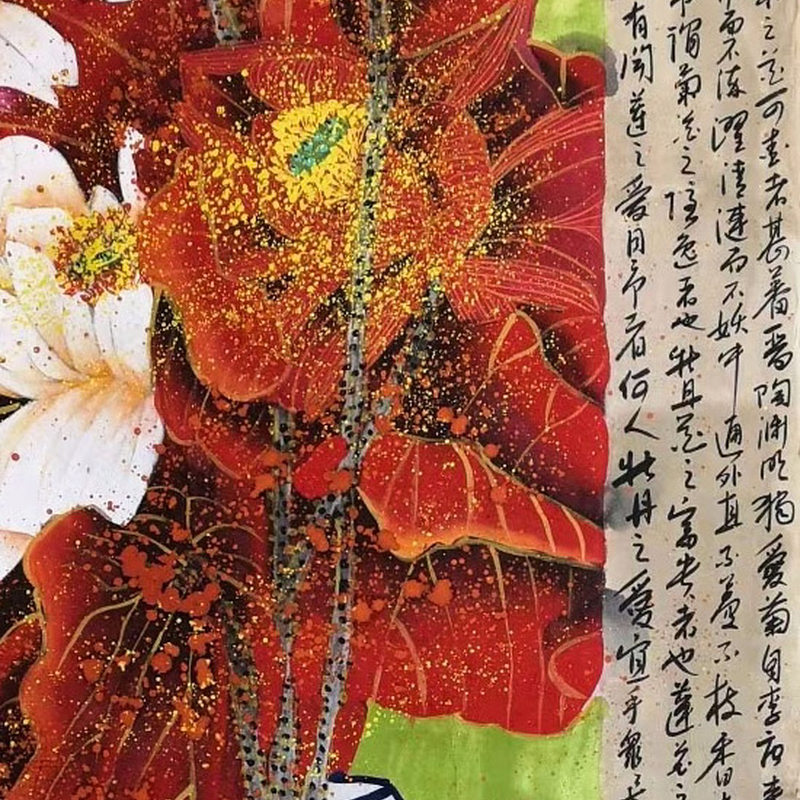 之花可爱者甚蕃晋陶渊明独愛菊自李唐来
而不染濯清漣而不妖中通外直不蔓不枝香
謂菊花之隐逸者也牡丹花之富贵者也蓮花之
有闻蓮之愛同予者何人牡丹之愛宜乎眾矣